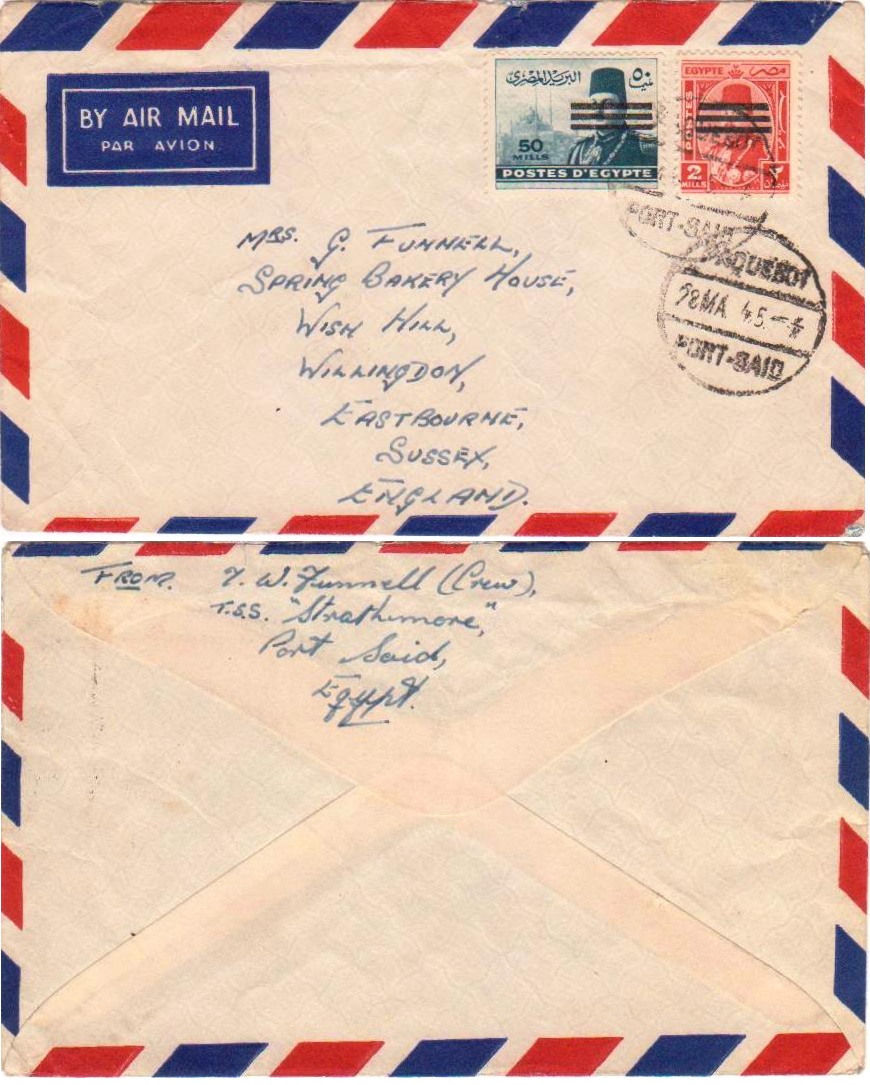 BY AIR MAIL
PAR AVION
البريد المصرى
٥٠
مليم
50
MILLS
POSTES D'EGYPTE
EGYPTE مصر
POSTES
2
MILLS
٢
PORT-SAID
PAQUEBOT
28MA 45.-4
PORT-SAID
MRS. G. FUNNELL,
SPRING BAKERY HOUSE,
WISH HILL,
WILLINGDON,
EASTBOURNE,
SUSSEX,
ENGLAND.
FROM. T. W. Funnell (Crew),
T.S.S. "Strathmore,"
Port Said,
Egypt.